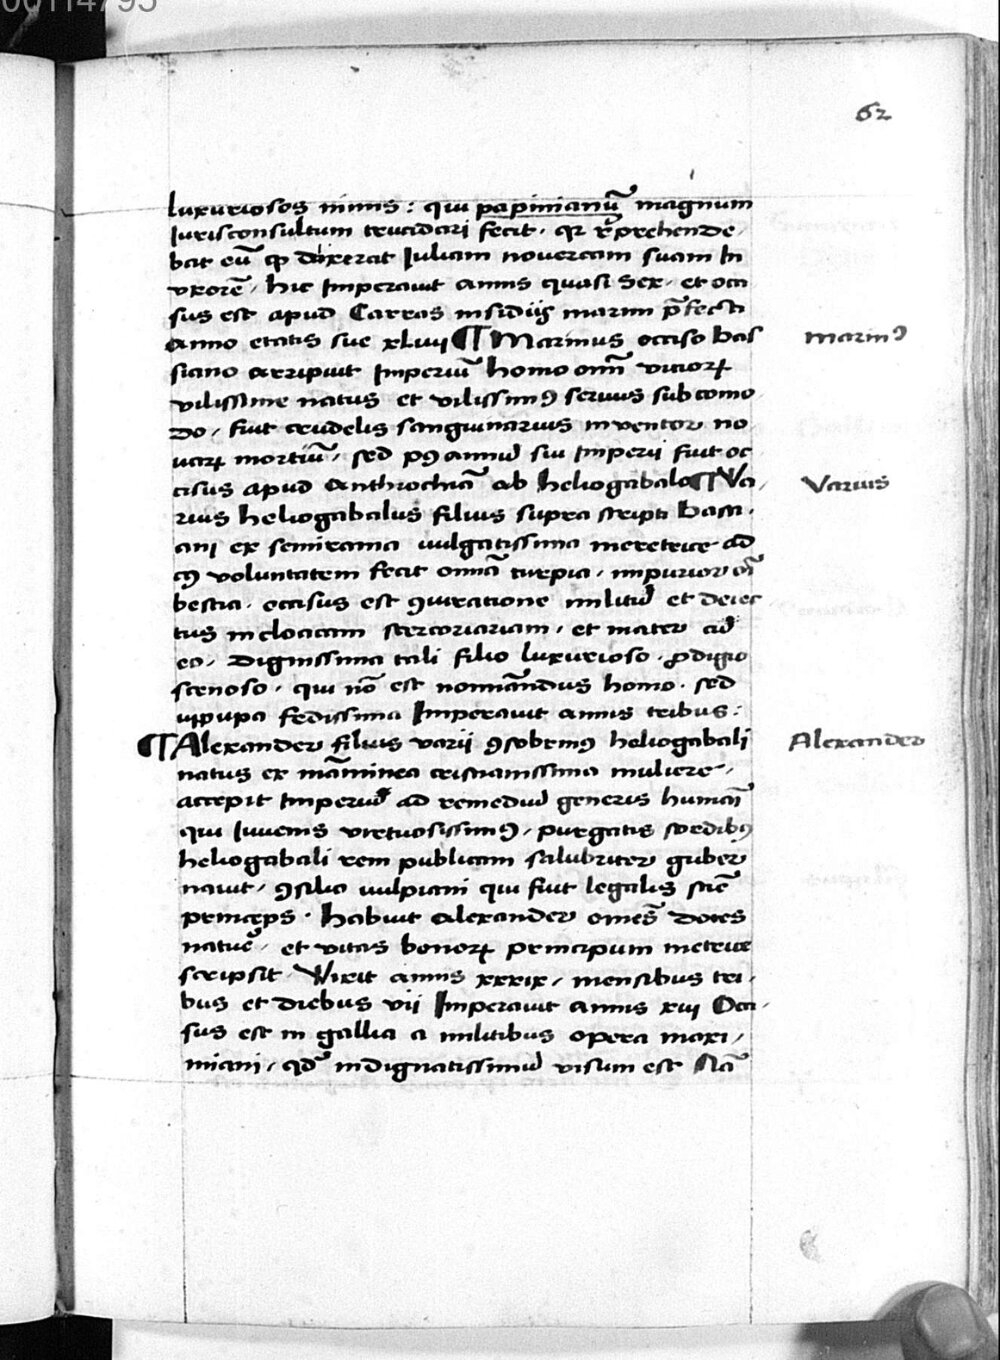 00114795
62
luxuriosos nimis : qui papinianū magnum
Jurisconsultum trucidari fecit . qr rep̄rehende
bat eū qp duxerat Juliam nouercam suam In
vxorē / hic Imperauit annis quasi sex . et occi
sus est apud Carras insidijs marini p̄fecti
Anno etatis sue xliiij ¶ Marinus occiso bas
siano arripuit Imperiū homo om̄i vicioꝝ
vilissime natus et vilissimꝰ seruus subcomo
do / fuit crudelis sanguinarius inuentor no
uaꝝ mortiū / sed pꝰ annū sui Imperii fuit oc
cisus apud Anthiochiā ab heliogabalo ¶ Va
rius heliogabalus filius supra scripti bassi
ani ex semirama uulgatissima meretrice ad
cꝰ voluntatem fecit omīa turpia . impurior om̄i
bestia . occisus est ꝯiuratione militū et deiec
tus in cloacam stercorariam / et mater cū
eo / dignissima tali filio luxurioso . ꝓdigio
scenoso . qui nō est nominandus homo . sed
upupa fedissima Imperauit annis tribus :
¶ Alexander filius varii ꝯsobrinꝰ heliogabali
natus ex māminea cristianissima muliere /
accepit Imperiū ad remediū generis humāi
qui Iuuenis virtuosissimꝰ / purgatis sordibꝰ
heliogabali rem publicam salubriter guber
nauit / ꝯsilio uulpiani qui fuit legalis sciē
princeps . habuit Alexander omēs dotes
naturē / et vitas bonoꝝ principum metrice
scripsit . Vixit annis xxxix / mensibus tri
bus et diebus vii Imperauit annis xiij Occi
sus est in gallia a militibus opera maxi /
miani / qd̄ indignatissimū visum est Nā
marinꝰ
Varius
Alexander